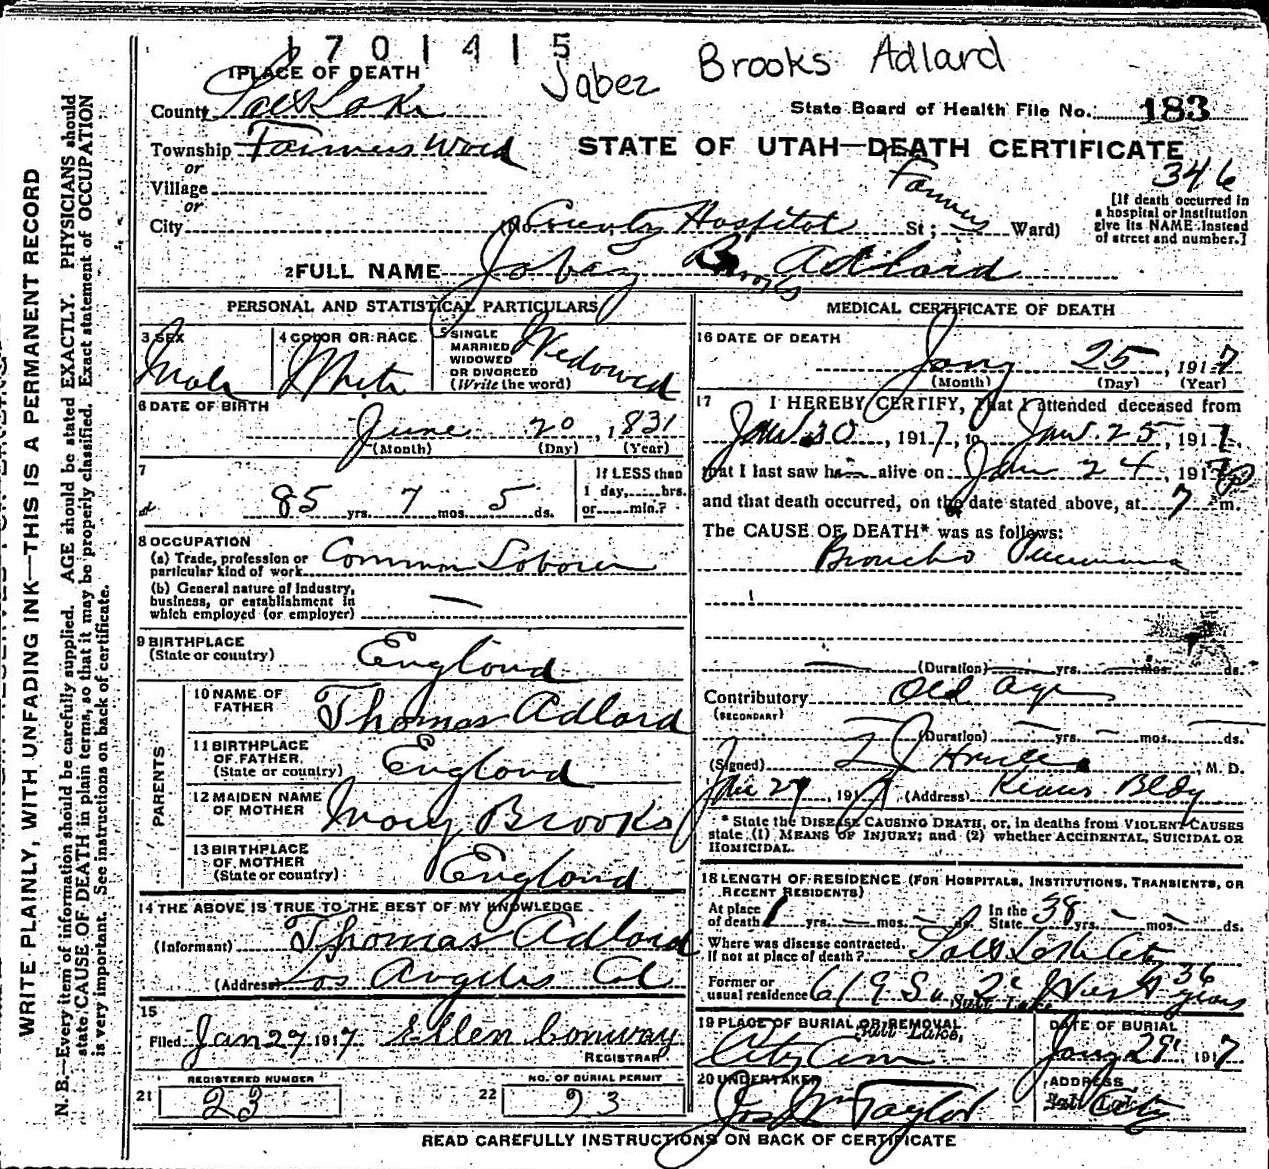 1701415
Jabez Brooks Adlard
1 PLACE OF DEATH
State Board of Health File No. 183
County Salt Lake
Township Farmers Ward
STATE OF UTAH—DEATH CERTIFICATE
346
or
Village
or
City
(No. County Hospital St; Farmers Ward)
[If death occurred in a hospital or institution give its NAME instead of street and number.]
2 FULL NAME Jabaz Brooks Adlard
PERSONAL AND STATISTICAL PARTICULARS
3 SEX Male
4 COLOR OR RACE White
5 SINGLE MARRIED WIDOWED OR DIVORCED (Write the word) Widowed
6 DATE OF BIRTH
June 20, 1831
(Month) (Day) (Year)
7
85 yrs. 7 mos. 5 ds.
If LESS than 1 day,......hrs. or......min.?
8 OCCUPATION
(a) Trade, profession or particular kind of work Common Laborer
(b) General nature of industry, business, or establishment in which employed (or employer) —
9 BIRTHPLACE (State or country) England
PARENTS
10 NAME OF FATHER Thomas Adlard
11 BIRTHPLACE OF FATHER (State or country) England
12 MAIDEN NAME OF MOTHER Mary Brooks
13 BIRTHPLACE OF MOTHER (State or country) England
14 THE ABOVE IS TRUE TO THE BEST OF MY KNOWLEDGE
(Informant) Thomas Adlard
(Address) Los Angeles Cal
15
Filed Jan 27 1917 Ellen Conway
REGISTRAR
21 REGISTERED NUMBER 23
22 NO. OF BURIAL PERMIT 93
MEDICAL CERTIFICATE OF DEATH
16 DATE OF DEATH
Jany 25, 1917
(Month) (Day) (Year)
17 I HEREBY CERTIFY, That I attended deceased from
Jan. 10, 1917, to Jan. 25, 1917
that I last saw him alive on Jan 24, 1917
and that death occurred, on the date stated above, at 7 m.
The CAUSE OF DEATH* was as follows:
Broncho Pneumonia
(Duration) yrs. mos. ds.
Contributory Old age
(SECONDARY)
(Duration) yrs. mos. ds.
(Signed) M. D.
191 (Address) Kearns Bldg
* State the DISEASE CAUSING DEATH, or, in deaths from VIOLENT CAUSES
state (1) MEANS OF INJURY; and (2) whether ACCIDENTAL, SUICIDAL OR
HOMICIDAL.
18 LENGTH OF RESIDENCE (FOR HOSPITALS, INSTITUTIONS, TRANSIENTS, OR
RECENT RESIDENTS)
At place of death 1 yrs. — mos. — ds. In the State 38 yrs. — mos. — ds.
Where was disease contracted, If not at place of death? Salt Lake City
Former or usual residence 619 So 2d West 36 years
Salt Lake
19 PLACE OF BURIAL OR REMOVAL Salt Lake, City Cem
DATE OF BURIAL Jany 29, 1917
20 UNDERTAKER Jos Wm Taylor
ADDRESS Salt Lake City
READ CAREFULLY INSTRUCTIONS ON BACK OF CERTIFICATE
WRITE PLAINLY, WITH UNFADING INK—THIS IS A PERMANENT RECORD
N. B.—Every item of information should be carefully supplied. AGE should be stated EXACTLY. PHYSICIANS should
state CAUSE OF DEATH in plain terms, so that it may be properly classified. Exact statement of OCCUPATION
is very important. See instructions on back of certificate.